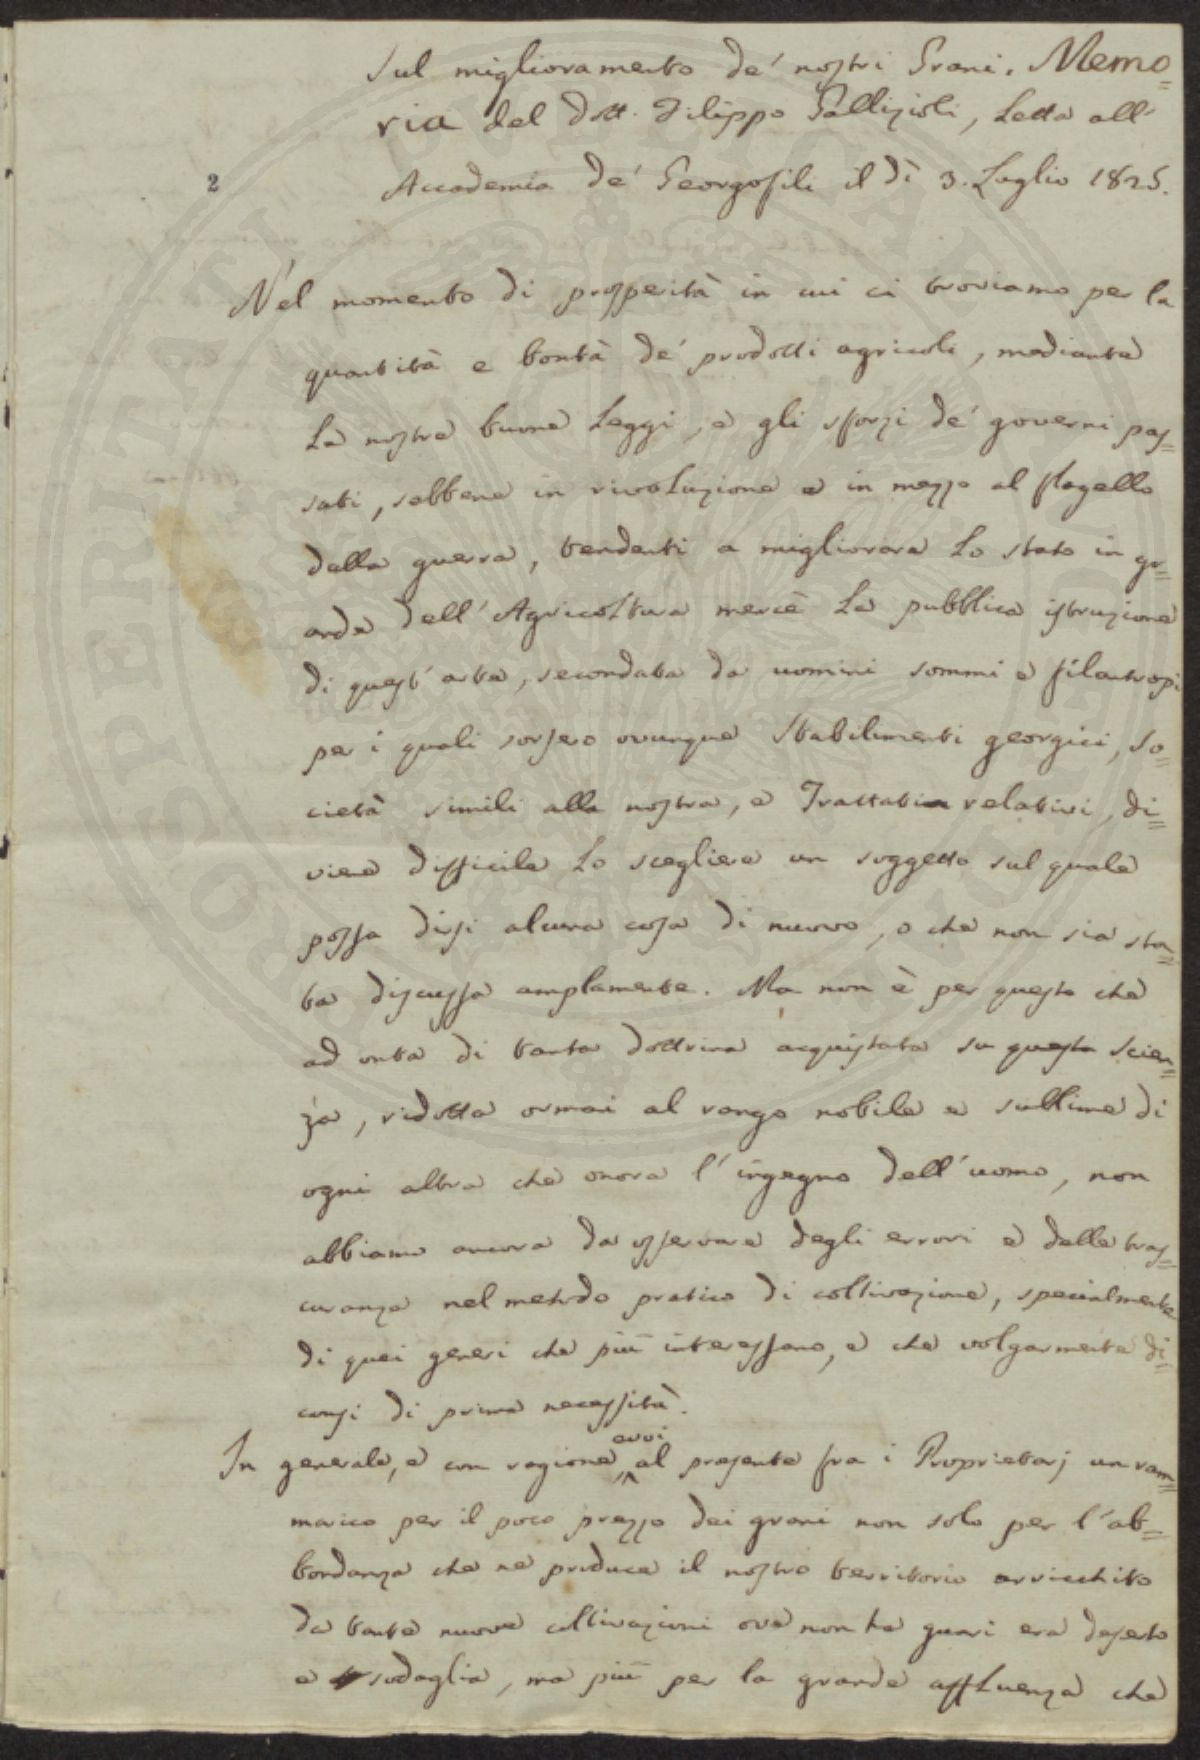 Sul miglioramento de' nostri Grani. Memo=
ria del Dott. Filippo Gallizioli, Letta all'
2
Accademia de' Georgofili il dì 3. Luglio 1825.
Nel momento di prosperità in cui ci troviamo per la
quantità e bontà de' prodotti agricoli, mediante
Le nostre buone Leggi, e gli sforzi de' governi pas=
sati, sebbene in rivoluzione e in mezzo al flagello
della guerra, tendenti a migliorare Lo stato in gr=
ande dell'Agricoltura mercè La pubblica istruzione
di quest'arte, secondata da uomini sommi e filantropi
per i quali sorsero ovunque Stabilimenti georgici, So=
cietà simili alla nostra, e Trattati relativi, di=
viene difficile Lo scegliere un soggetto sul quale
possa dirsi alcuna cosa di nuovo, o che non sia sta=
ta discussa amplamente. Ma non è per questo che
ad onta di tanta dottrina acquistata su questa scien=
za, ridotta ormai al rango nobile e sublime di
ogni altra che onora l'ingegno dell'uomo, non
abbiamo ancora da osservare degli errori e delle tras=
curanze nel metodo pratico di coltivazione, specialmente
di quei generi che più interessano, e che volgarmente di=
consi di prima necessità.
In generale, e con ragione, avvi al presente fra i Proprietarj un ram=
marico per il poco prezzo dei grani non solo per l'ab=
bondanza che ne produce il nostro territorio arricchito
da tante nuove coltivazioni ove non ha guari era deserto
e sodaglia, ma più per la grande affluenza che